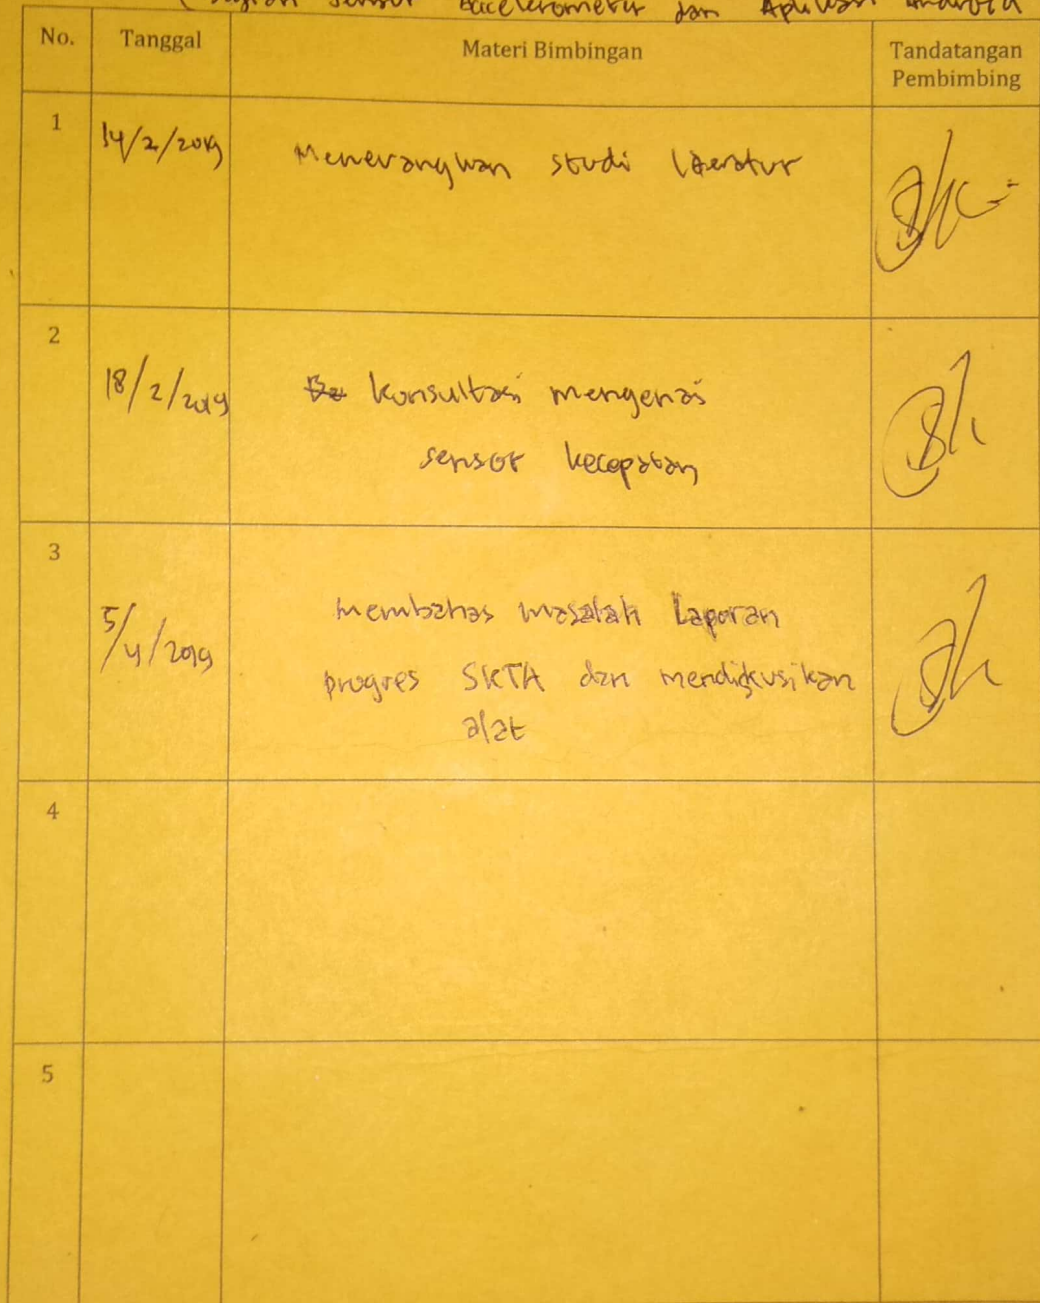 (Bagian Sensor accelerometer dan Aplikasi Android
No. Tanggal Materi Bimbingan Tandatangan
Pembimbing
1 14/2/2019 Menerangkan studi literatur
2 18/2/2019 Konsultasi mengenai
sensor kecepatan
3 5/4/2019 Membahas masalah Laporan
progres SKTA dan mendiskusikan
alat
4
5